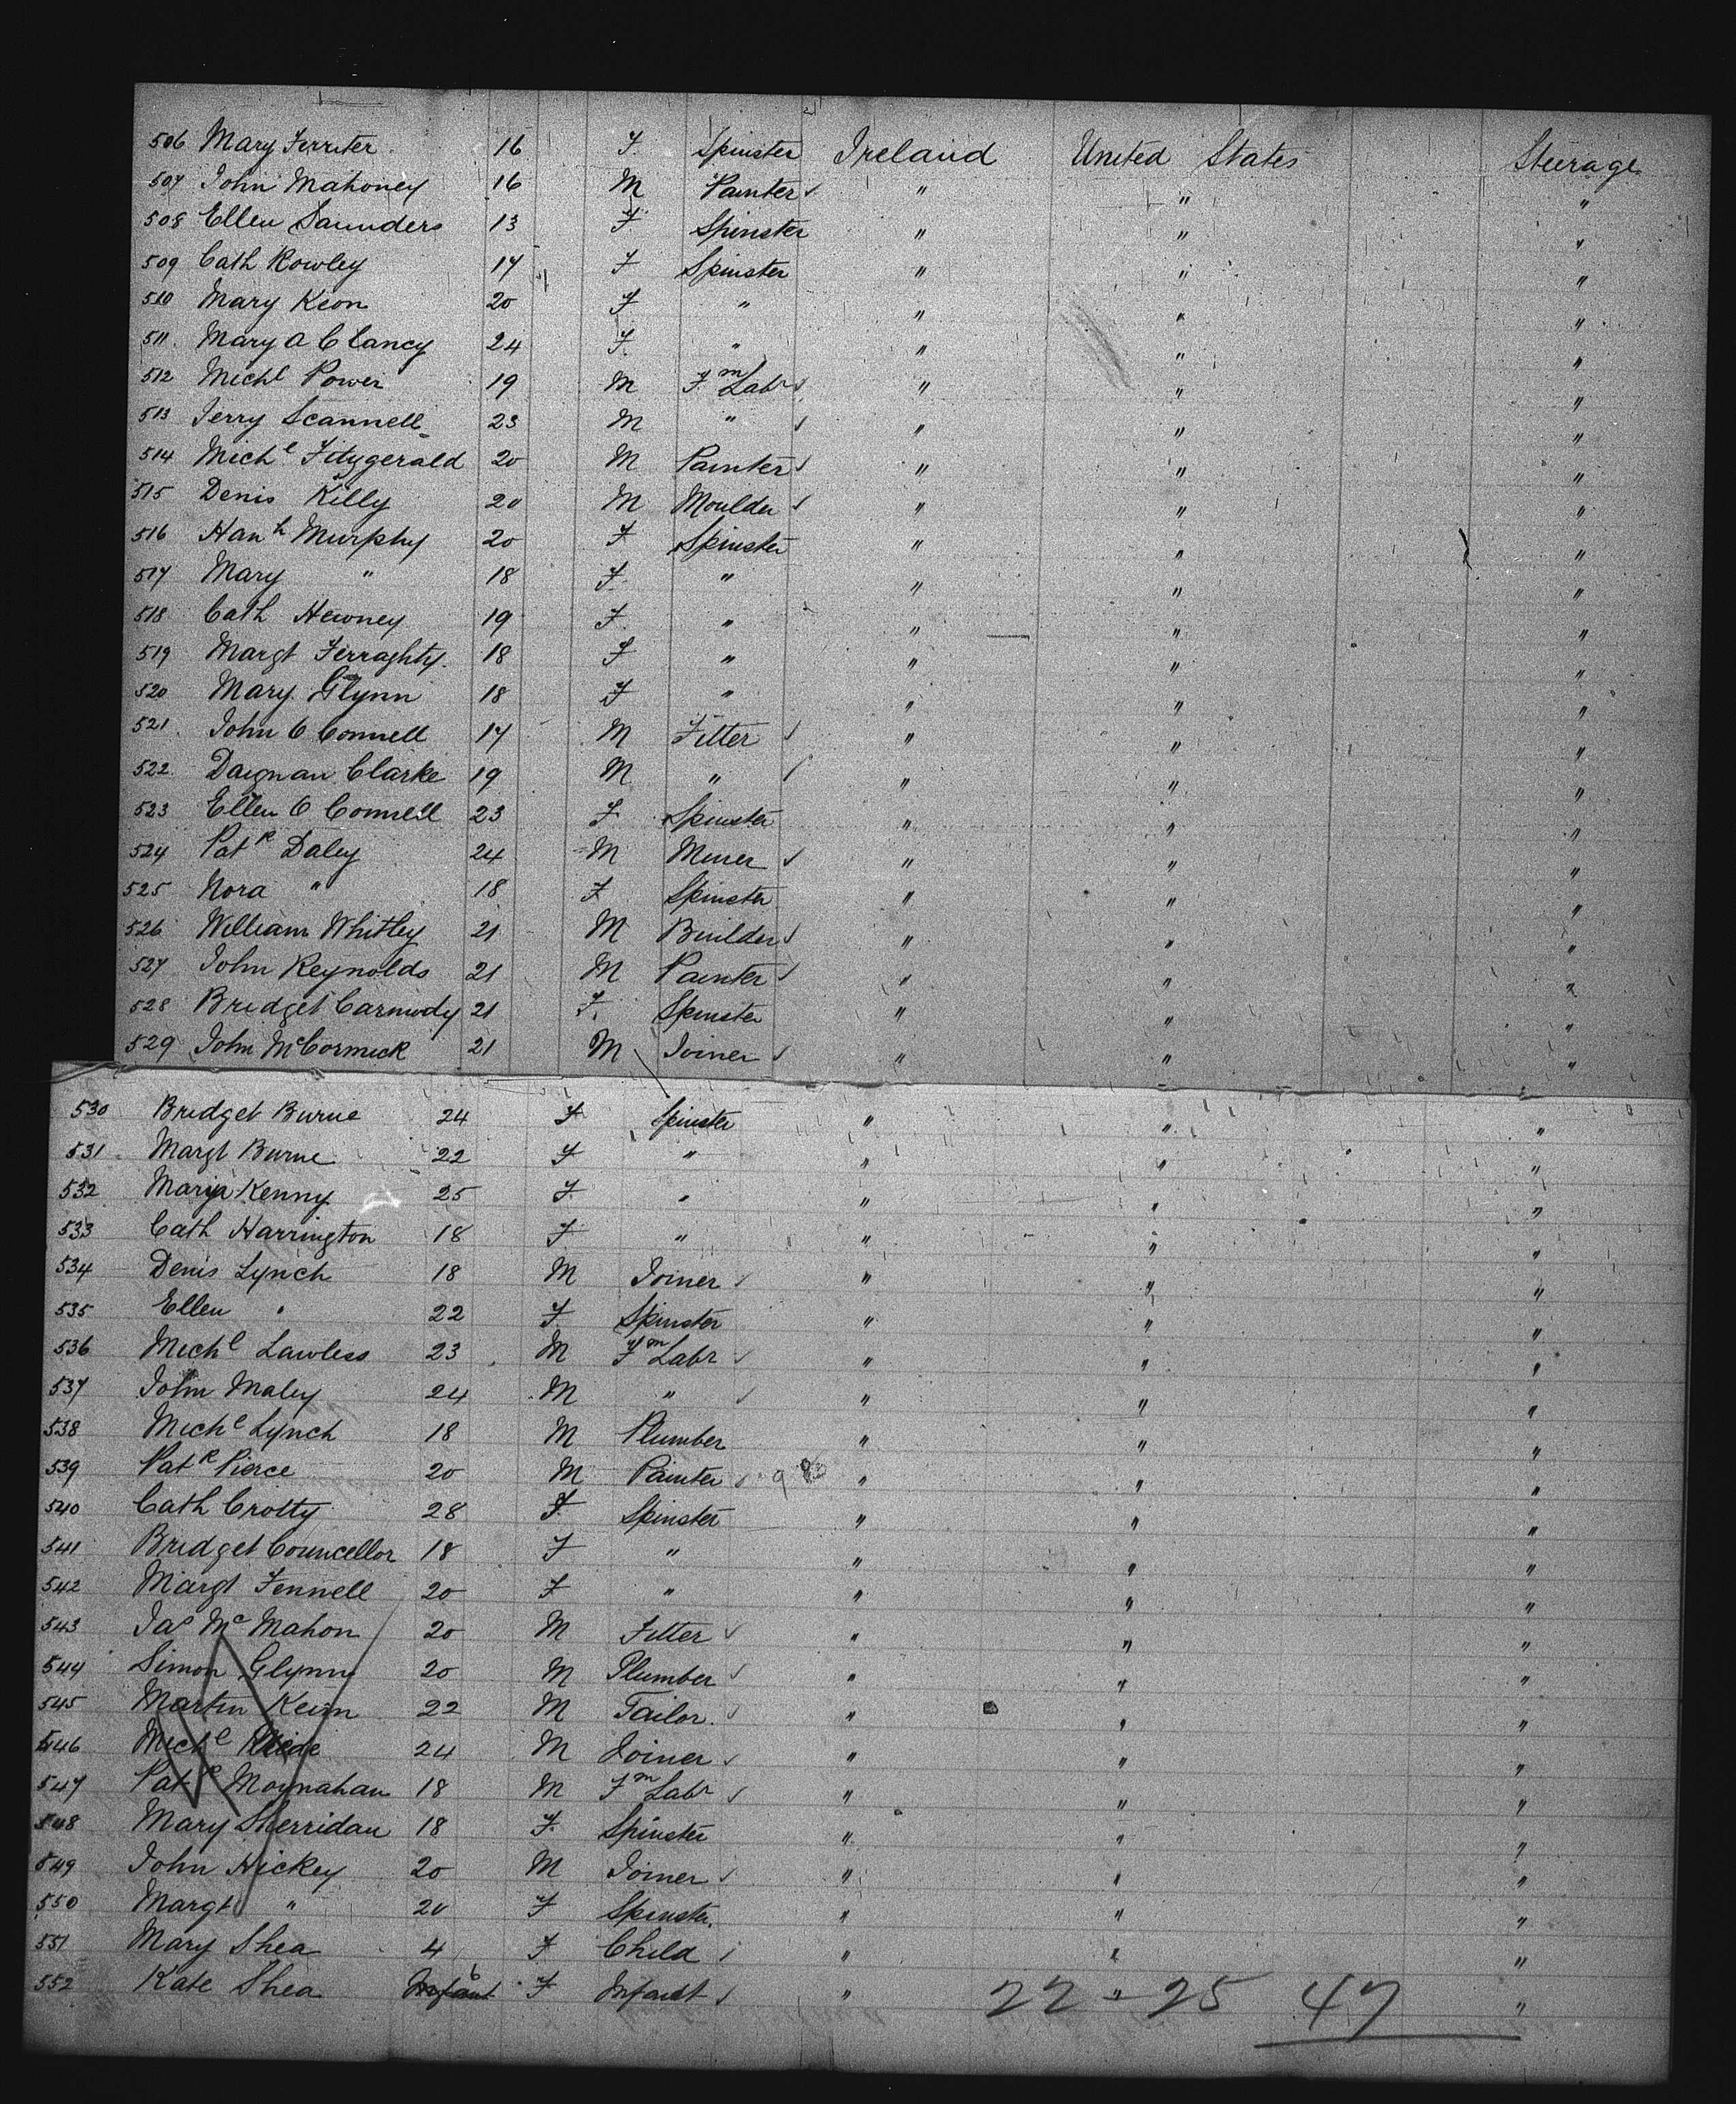 506 Mary Ferriter 16 F. Spinster Ireland United States Steerage
507 John Mahoney 16 M Painter " " "
508 Ellen Saunders 13 F Spinster " " "
509 Cath Rowley 17 F Spinster " " "
510 Mary Keon 20 F " " " "
511. Mary A Clancy 24 F. " " " "
512 Michl Power 19 M Fm Labr " " "
513 Jerry Scannell 23 M " " " "
514 Michl Fitzgerald 20 M Painter " " "
515 Denis Killy 20 M Moulder " " "
516 Hanh Murphy 20 F Spinster " " "
517 Mary " 18 F. " " " "
518 Cath Hewney 19 F. " " " "
519 Margt Ferraghty. 18 F " " " "
520 Mary Glynn 18 F " " " "
521. John O Connell 17 M Fitter " " "
522. Daignan Clarke 19 M " " " "
523 Ellen O Connell 23 F Spinster " " "
524 Patk Daley 24 M Miner " " "
525 Nora " 18 F Spinster " " "
526 William Whitley 21 M Builder " " "
527 John Reynolds 21 M Painter " " "
528 Bridget Carmody 21 F. Spinster " " "
529 John McCormick 21 M Joiner " " "
530 Bridget Burne 24 F Spinster " " "
531 Margt Burne 22 F " " " "
532 Maria Kenny 25 F " " " "
533 Cath Harrington 18 F " " " "
534 Denis Lynch 18 M Joiner " " "
535 Ellen " 22 F Spinster " " "
536 Michl Lawless 23 M Fm Labr " " "
537 John Maley 24 M " " " "
538 Michl Lynch 18 M Plumber " " "
539 Patk Pierce 20 M Painter " " "
540 Cath Crotty 28 F Spinster " " "
541 Bridget Councellor 18 F " " " "
542 Margt Fennell 20 F " " " "
543 Jas McMahon 20 M Fitter " " "
544 Simon Glynn 20 M Plumber " " "
545 Martin 22 M Tailor. " " "
546 Michl 24 M Joiner " " "
547 Patk Moynahan 18 M Fm Labr " " "
548 Mary Sherridan 18 F. Spinster " " "
549 John Hickey 20 M Joiner " " "
550 Margt " 20 F Spinster. " " "
551 Mary Shea 4 F Child " " "
552 Kate Shea Infant F Infant " " "
22 - 25 47